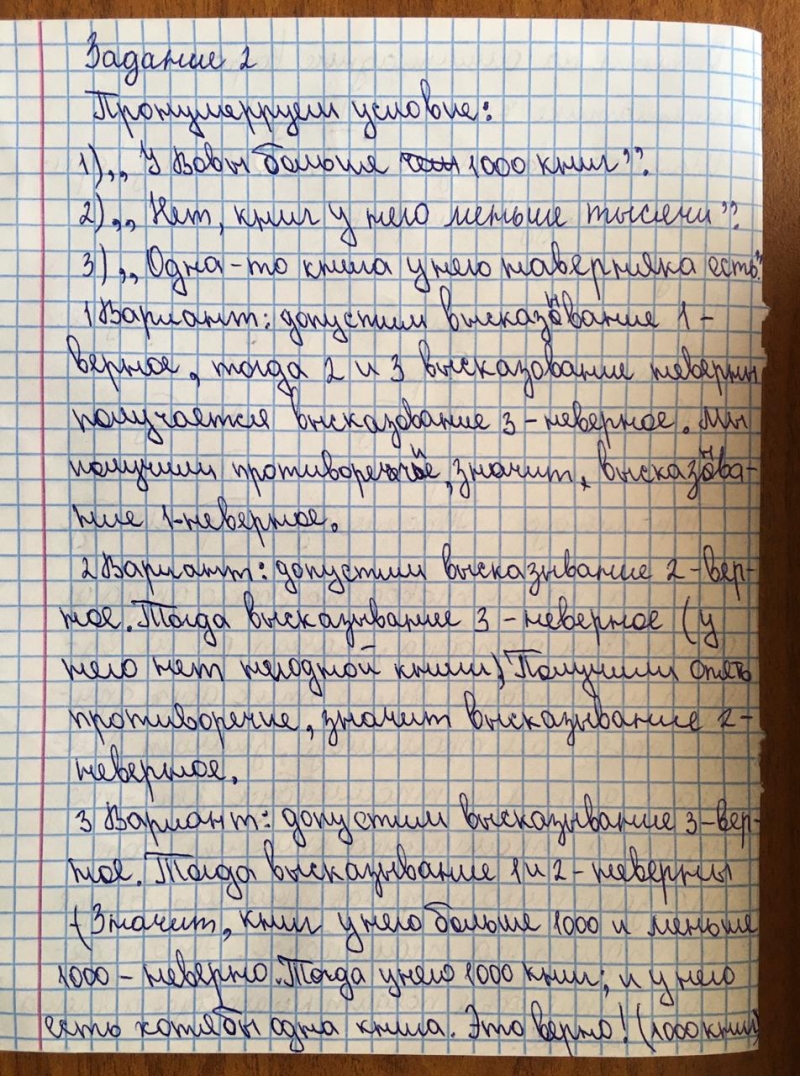 Задание 2
Пронумерруем условие:
1),,У Вовы больше 1000 книг".
2),,Нет, книг у него меньше тысячи".
3),,Одна-то книга у него наверняка есть."
1 Вариант: допустим высказывание 1-
верное, тогда 2 и 3 высказование неверны
получается высказование 3-неверное. Мы
получили противоречие, значит, высказыва-
ние 1-неверное.
2 Вариант: допустим высказывание 2-вер-
ное. Тогда высказывание 3-неверное (у
него нет ниодной книги) Получили опять
противоречие, значит высказывание 2-
неверное.
3 Вариант: допустим высказывание 3-вер-
ное. Тогда высказывание 1 и 2-неверны
(Значит, книг у него больше 1000 и меньше
1000-неверно. Тогда у него 1000 книг; и у него
есть хотябы одна книга. Это верно! (1000 книг)